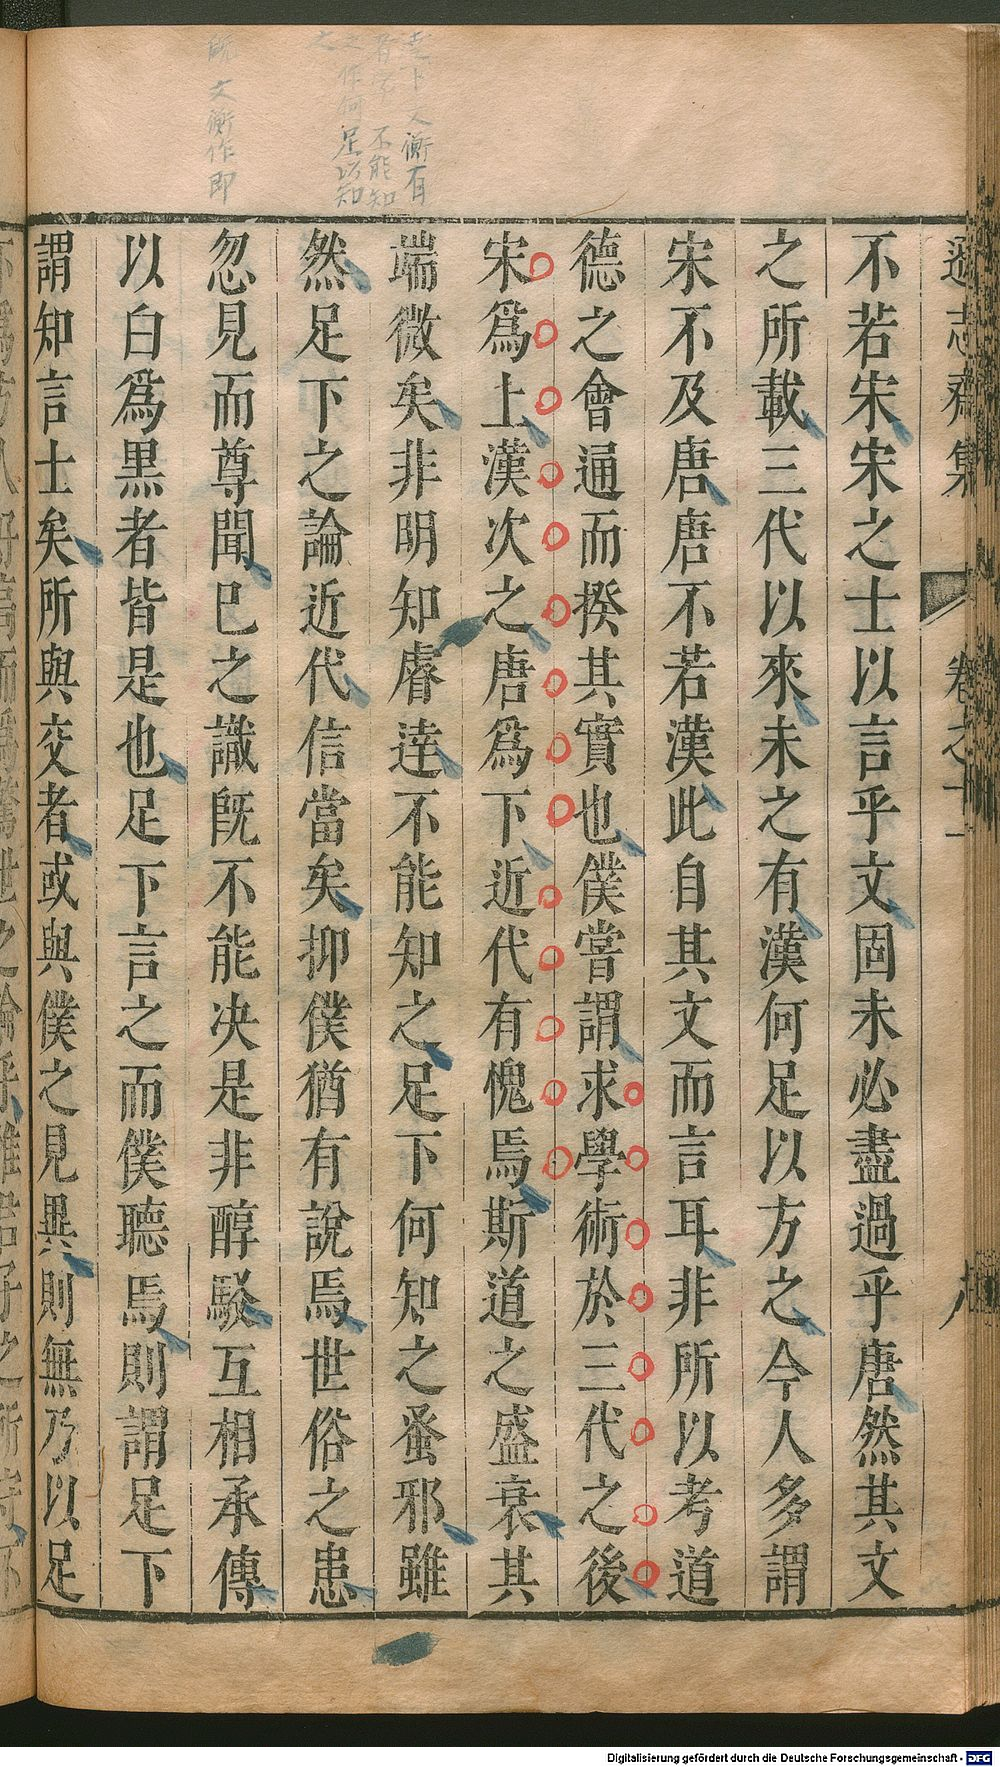 遜志齋集 卷之十一
不若宋宋之士以言乎文固未必盡過乎唐然其文
之所載三代以來未之有漢何足以方之今人多謂
宋不及唐唐不若漢此自其文而言耳非所以考道
德之會通而揆其實也僕嘗謂求學術於三代之後
宋爲上漢次之唐爲下近代有愧焉斯道之盛衰其
端微矣非明知睿逹不能知之足下何知之蚤邪雖
然足下之論近代信當矣抑僕猶有說焉世俗之患
忽見而尊聞已之識旣不能决是非醇駁互相承傳
以白爲黒者皆是也足下言之而僕聽焉則謂足下
謂知言士矣所與交者或與僕之見異則無乃以足
逹下文衡有
不能知
之作何足以知
文衡作即
Digitalisierung gefördert durch die Deutsche Forschungsgemeinschaft - DFG